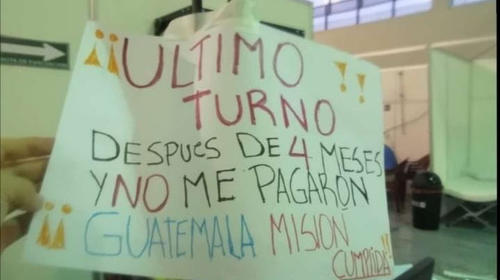 ¡¡ULTIMO !!
TURNO
DESPUES DE 4 MESES
Y NO ME PAGARÓN
¡¡GUATEMALA MISIÓN
CUMPLIDA!!